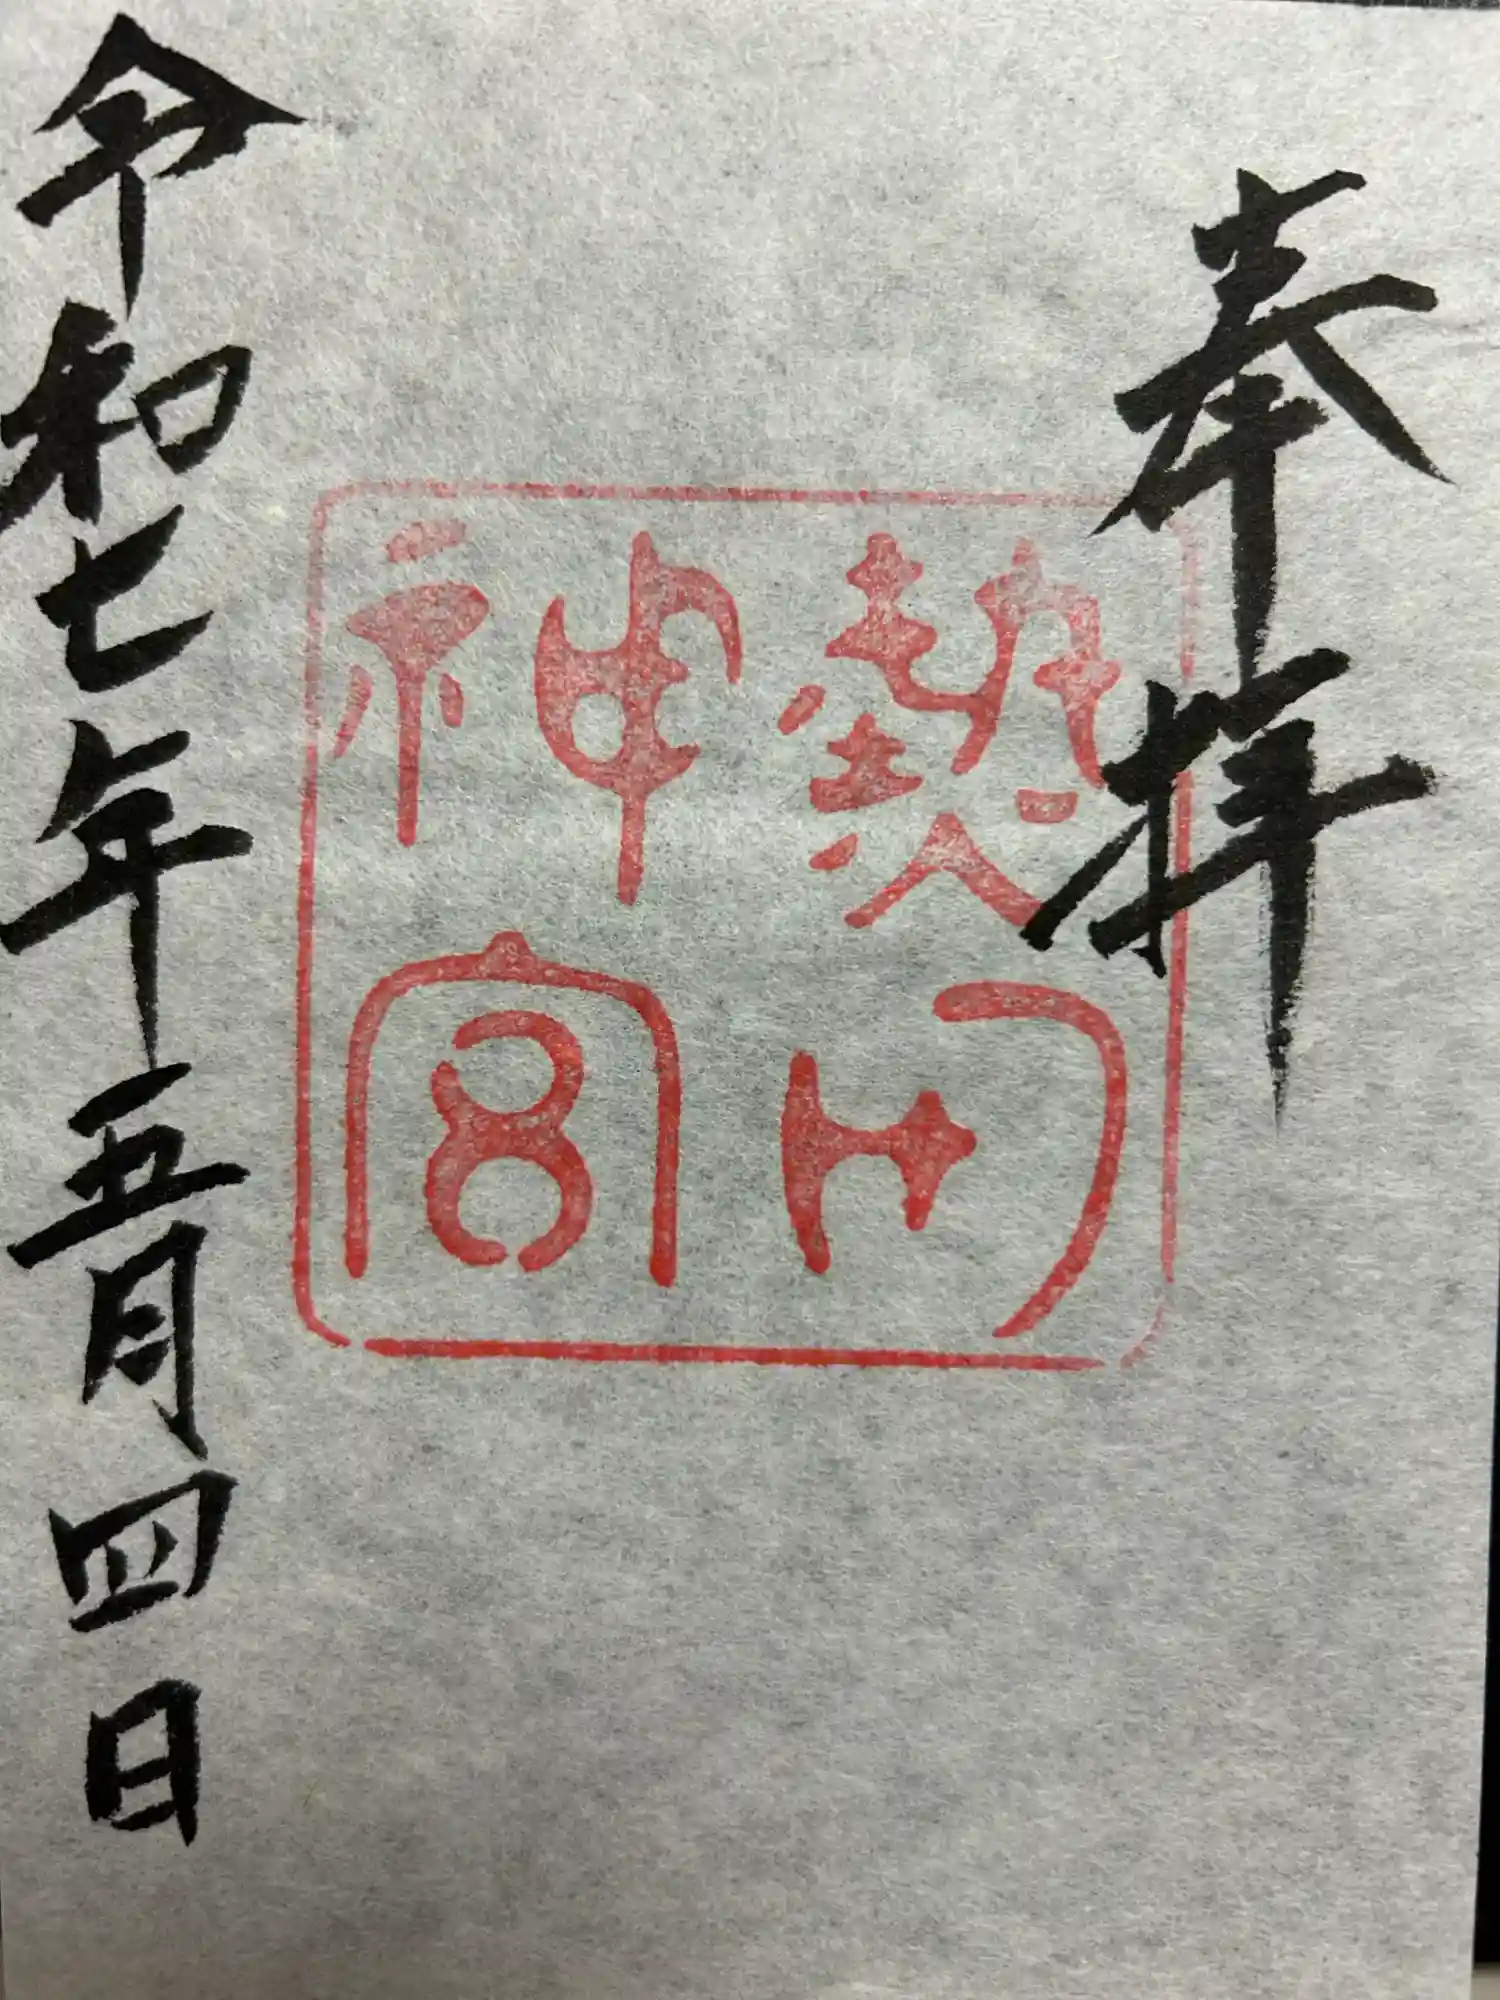 奉拝
熱田神宮
令和七年五月四日